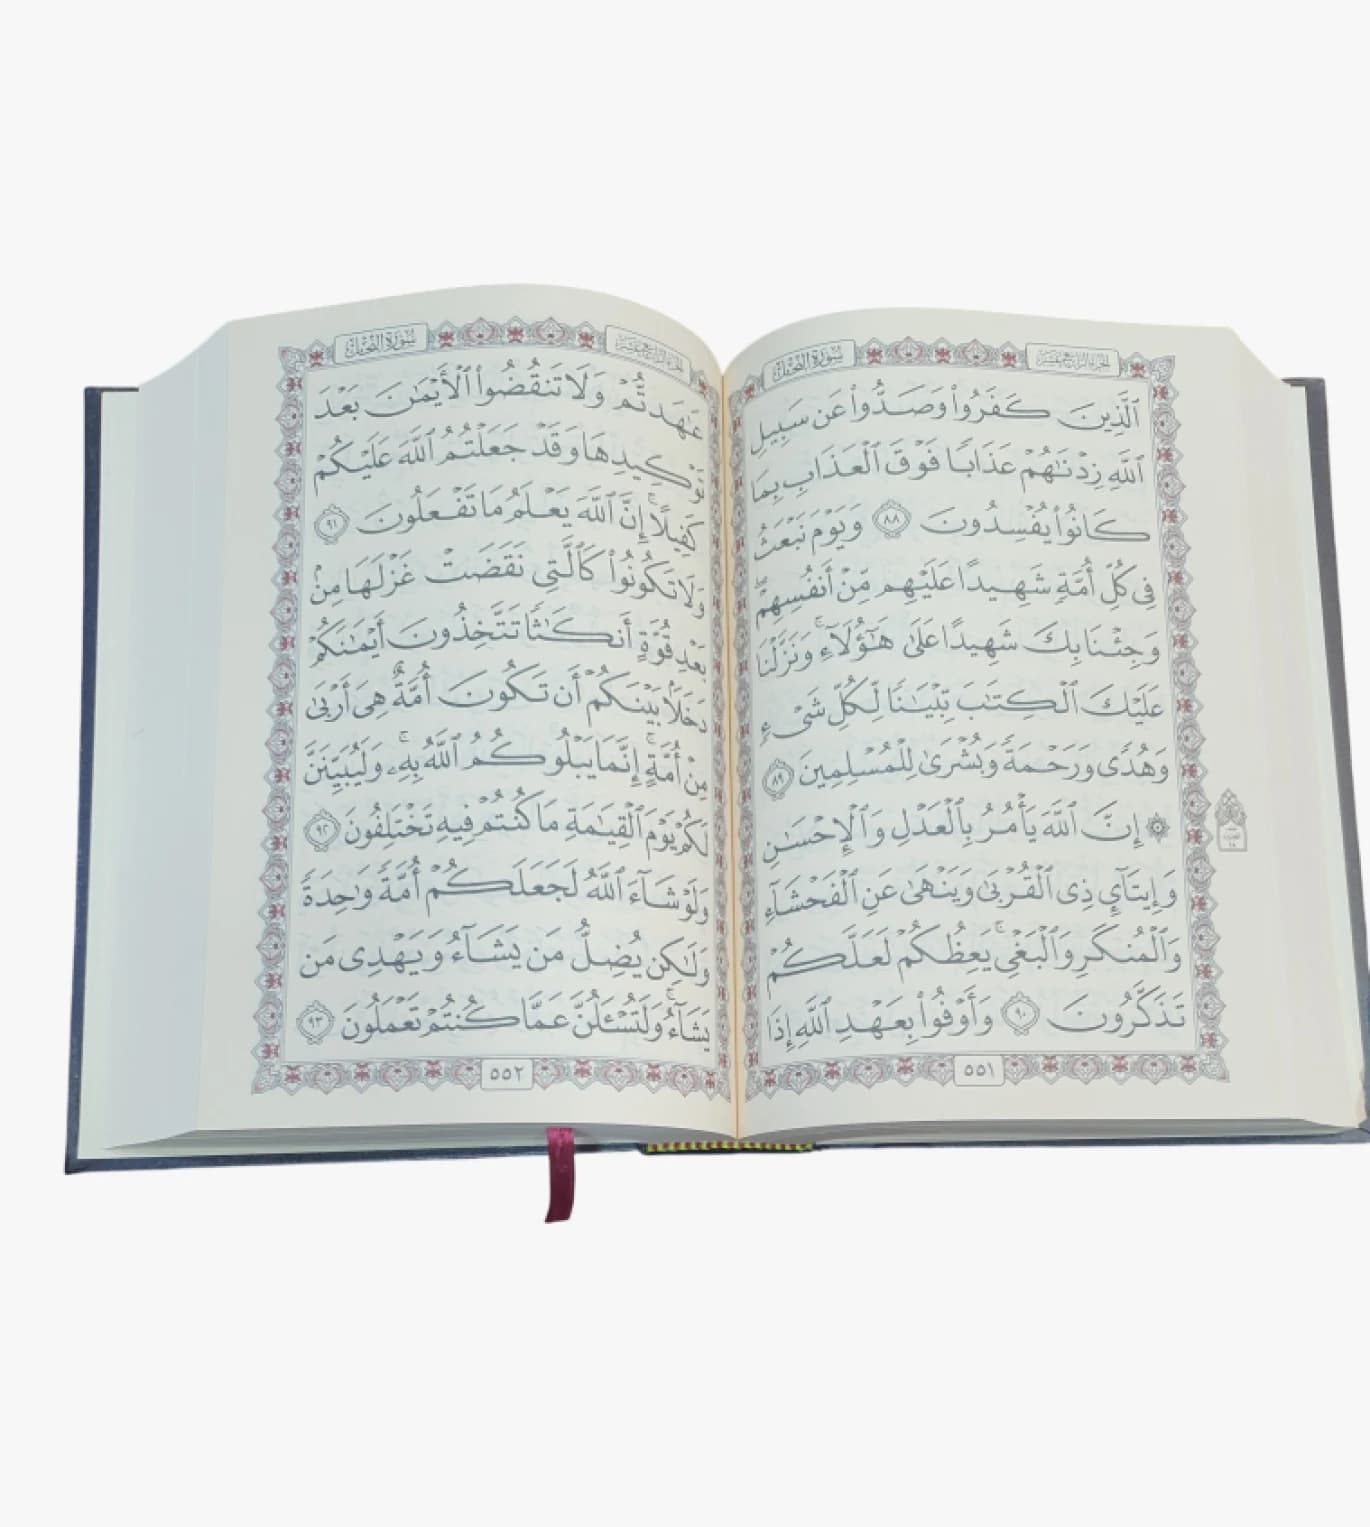 الجزء الرابع عشر
سورة النحل
ٱلَّذِينَ كَفَرُوا۟ وَصَدُّوا۟ عَن سَبِيلِ
ٱللَّهِ زِدْنَٰهُمْ عَذَابًا فَوْقَ ٱلْعَذَابِ بِمَا
كَانُوا۟ يُفْسِدُونَ ٨٨ وَيَوْمَ نَبْعَثُ
فِى كُلِّ أُمَّةٍ شَهِيدًا عَلَيْهِم مِّنْ أَنفُسِهِمْ ۖ
وَجِئْنَا بِكَ شَهِيدًا عَلَىٰ هَٰٓؤُلَآءِ ۚ وَنَزَّلْنَا
عَلَيْكَ ٱلْكِتَٰبَ تِبْيَٰنًا لِّكُلِّ شَىْءٍ
وَهُدًى وَرَحْمَةً وَبُشْرَىٰ لِلْمُسْلِمِينَ ٨٩
۞ إِنَّ ٱللَّهَ يَأْمُرُ بِٱلْعَدْلِ وَٱلْإِحْسَٰنِ
وَإِيتَآئِ ذِى ٱلْقُرْبَىٰ وَيَنْهَىٰ عَنِ ٱلْفَحْشَآءِ
وَٱلْمُنكَرِ وَٱلْبَغْىِ ۚ يَعِظُكُمْ لَعَلَّكُمْ
تَذَكَّرُونَ ٩٠ وَأَوْفُوا۟ بِعَهْدِ ٱللَّهِ إِذَا
٥٥١
الجزء الرابع عشر
سورة النحل
عَٰهَدتُّمْ وَلَا تَنقُضُوا۟ ٱلْأَيْمَٰنَ بَعْدَ
تَوْكِيدِهَا وَقَدْ جَعَلْتُمُ ٱللَّهَ عَلَيْكُمْ
كَفِيلًا ۚ إِنَّ ٱللَّهَ يَعْلَمُ مَا تَفْعَلُونَ ٩١
وَلَا تَكُونُوا۟ كَٱلَّتِى نَقَضَتْ غَزْلَهَا مِنۢ
بَعْدِ قُوَّةٍ أَنكَٰثًا تَتَّخِذُونَ أَيْمَٰنَكُمْ
دَخَلًۢا بَيْنَكُمْ أَن تَكُونَ أُمَّةٌ هِىَ أَرْبَىٰ
مِنْ أُمَّةٍ ۚ إِنَّمَا يَبْلُوكُمُ ٱللَّهُ بِهِۦ ۚ وَلَيُبَيِّنَنَّ
لَكُمْ يَوْمَ ٱلْقِيَٰمَةِ مَا كُنتُمْ فِيهِ تَخْتَلِفُونَ ٩٢
وَلَوْ شَآءَ ٱللَّهُ لَجَعَلَكُمْ أُمَّةً وَٰحِدَةً
وَلَٰكِن يُضِلُّ مَن يَشَآءُ وَيَهْدِى مَن
يَشَآءُ ۚ وَلَتُسْـَٔلُنَّ عَمَّا كُنتُمْ تَعْمَلُونَ ٩٣
٥٥٢